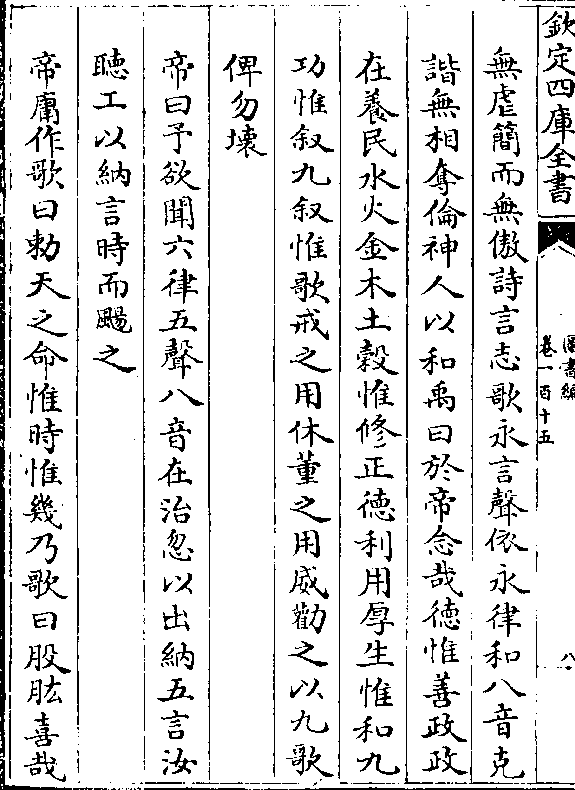 欽定四庫全書
圖書編
卷一百十五
八
無虐簡而無傲詩言志歌永言聲依永律和八音克
諧無相奪倫神人以和禹曰於帝念哉德惟善政政
在養民水火金木土穀惟修正德利用厚生惟和九
功惟叙九叙惟歌戒之用休董之用威勸之以九歌
俾勿壞
帝曰予欲聞六律五聲八音在治忽以出納五言汝
聽工以納言時而颺之
帝庸作歌曰勅天之命惟時惟幾乃歌曰股肱喜哉